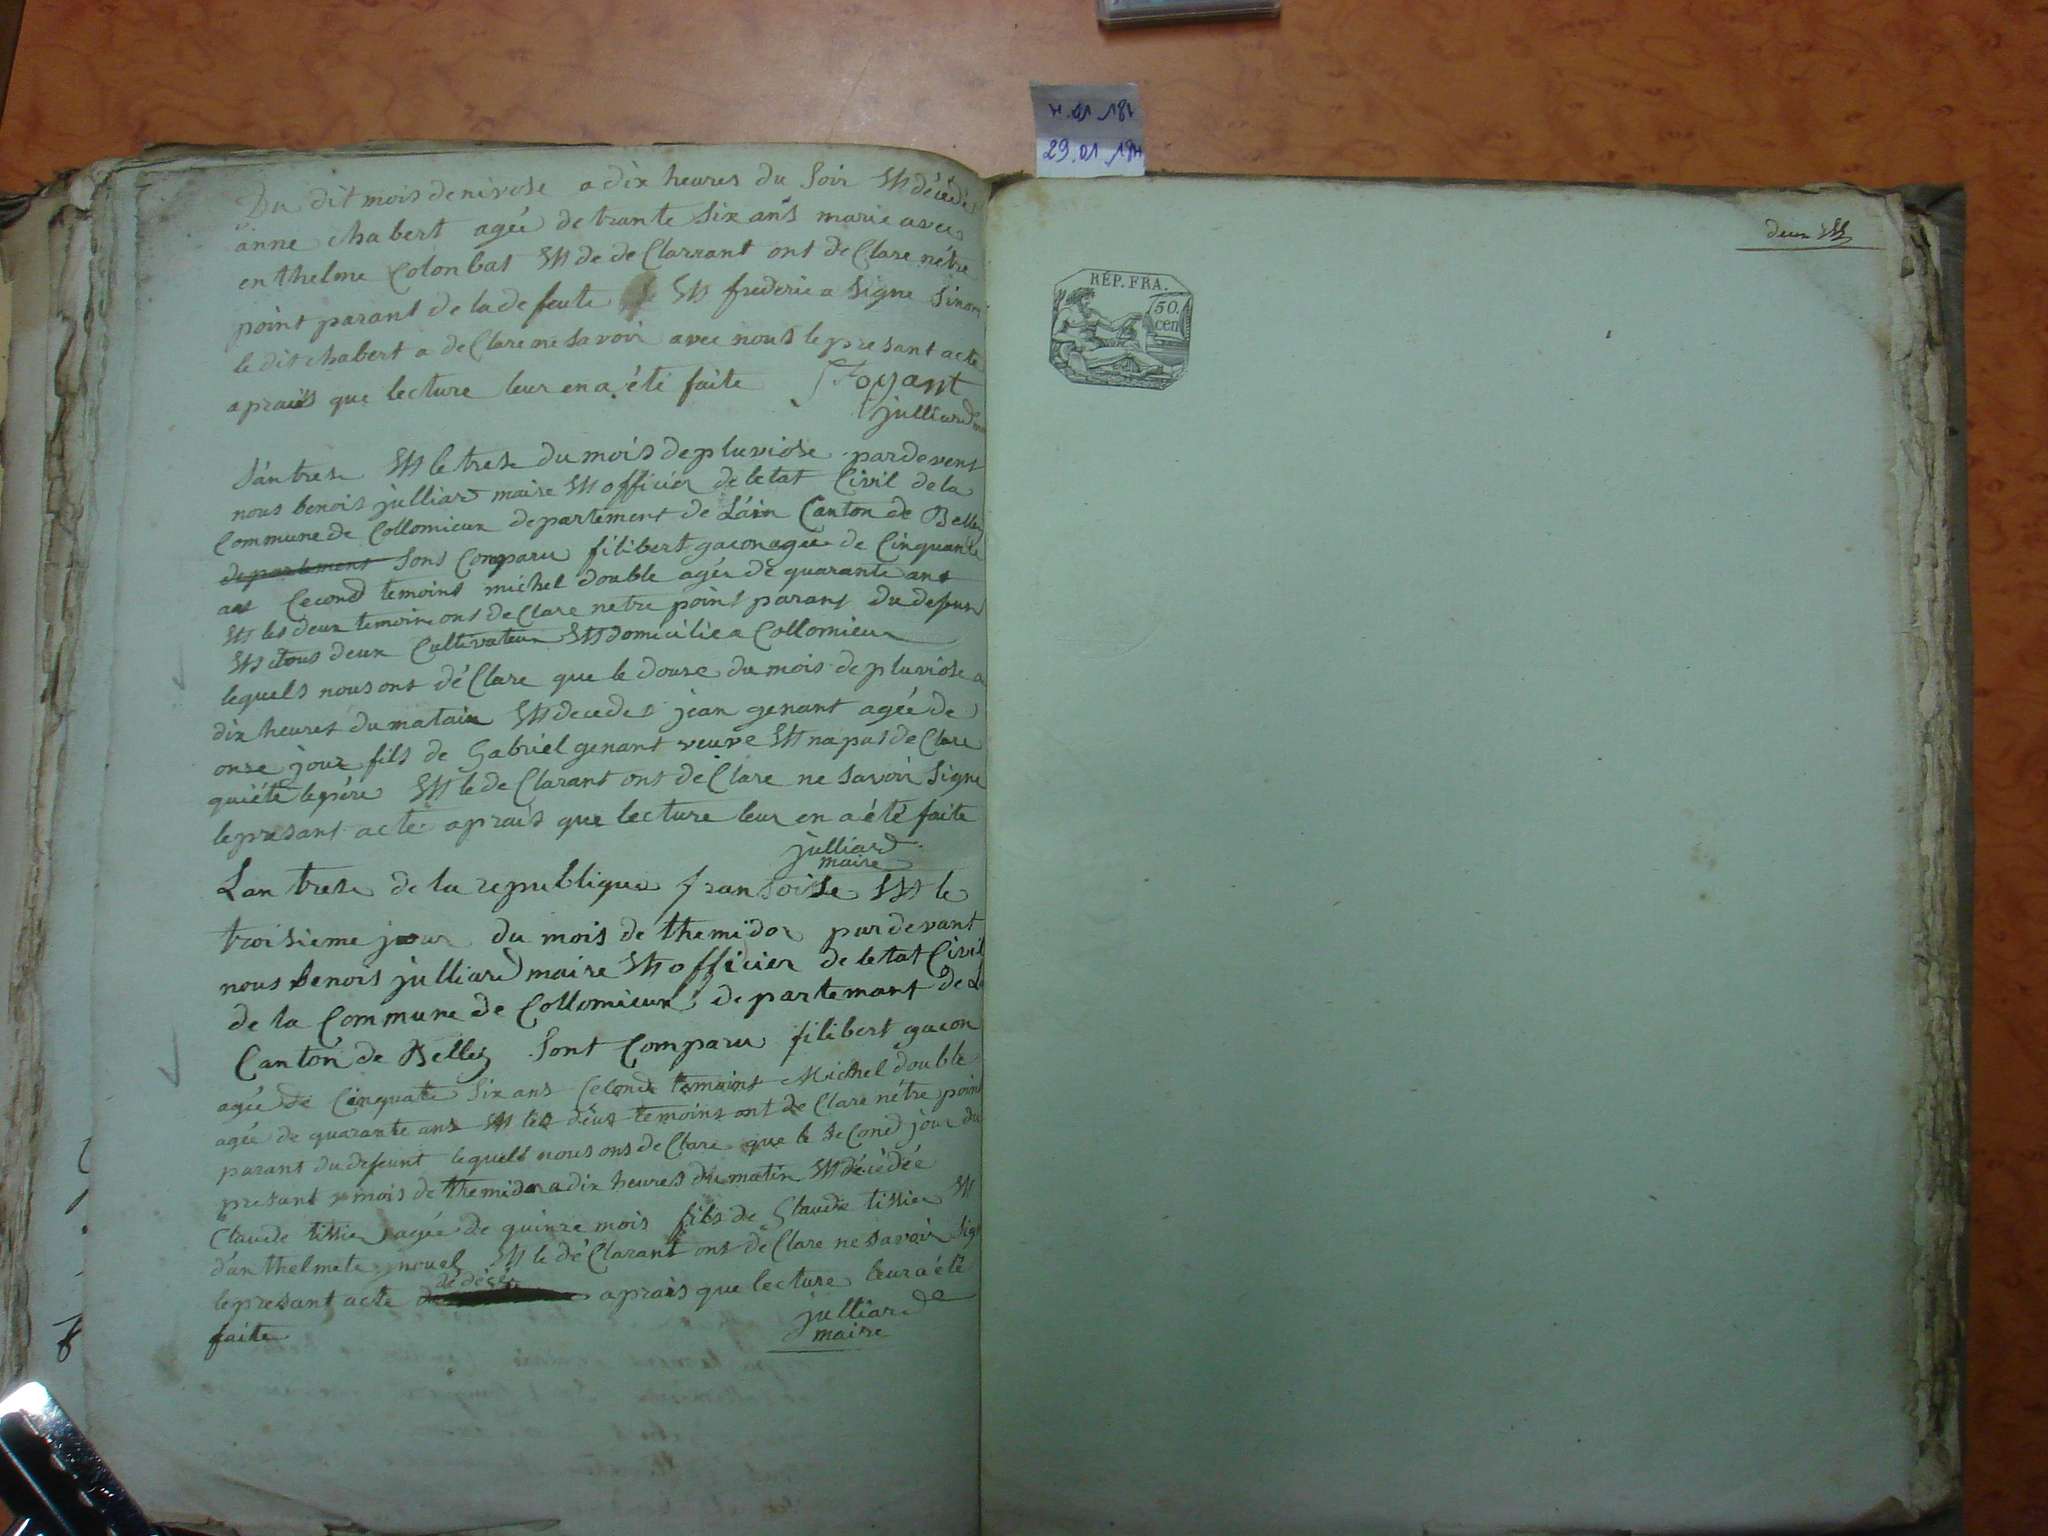 Du dit mois de nivose a dix heures du soir Est décédé
anne chabert ageé de trante six ans marie avec
enthelme Colonbat Et de de Clarrant ont de Clare nétre
point parant de la defeute Et frederic a Signe
le dit chabert a de Clare ne savoir avec nous le presant acte
apraiis que lecture leur en a été faite Joyant
julliard
Lan tresr Et le trese du mois de pluviose par devent
nous benois julliard maire Et officiér de letat Civil de la
Commune de Collomieux departement de Láin Canton de Belley
departement Sont Comparu filibert gacon ageé de Cinquante
ans Second temoins michel double ageé de quarante ans
Et les deux temoin ons de Clare netre point parant du defeun
Et tous deux Cultivateur Et domicilie a Collomieux
lequels nous ont dé Clare que le douse du mois de pluviose a
dix heures du matain Et decedes jean genant ageé de
onse jour fils de Gabriel genant veuve Et na pas de Clare
qui été le pére Et le de Clarant ont de Clare ne savoir signe
le presant acte apraís que lecture leur en a été faite
julliard
maire
Lan trese de la republique fransoisse Et le
troisieme jour du mois de themidor par devant
nous benois julliard maire Et officier de letat Civil
de la Commune de Collomieux departemant de L
Canton de Belley Sont Comparu filibert gacon
ageé de Cinquate six ans Second temoins Michel double
ageé de quarante ans Et les deux temoins ont de Clare nétre point
parant du defeunt lequels nous ons de Clare que le se Cond jour du
presant mois de themidor a dix heures du matin Et décédée
Claude tissier ageé de quinze mois fils de Claude tissier Et
dánthelmete nouel Et le dé Clarant ont de Clare ne savoir sign
le presant acte de désés apraís que lecture leur a été
faite
julliard
maire
deux Et
RÉP. FRA.
50.
cen
29.01.181